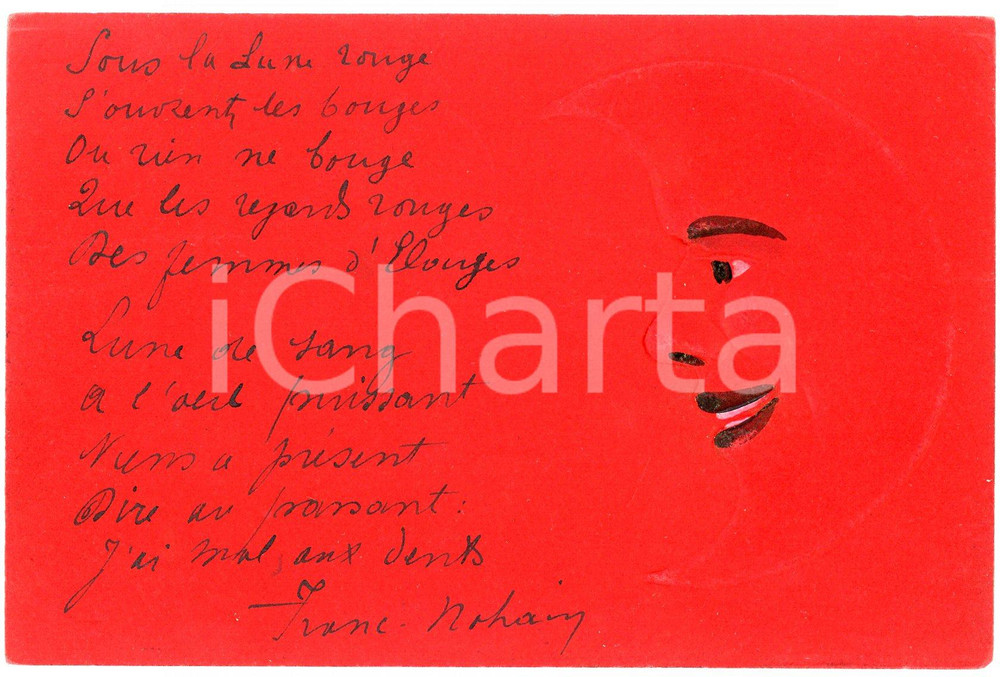 Sous la Lune rouge
S'ouvrent les bouges
Ou rien ne bouge
Que les regards rouges
Des femmes d'Elouges
iCharta
Lune de sang
A l'oeil puissant
Viens a présent
Dire au passant :
J'ai mal aux dents
Franc-Nohain